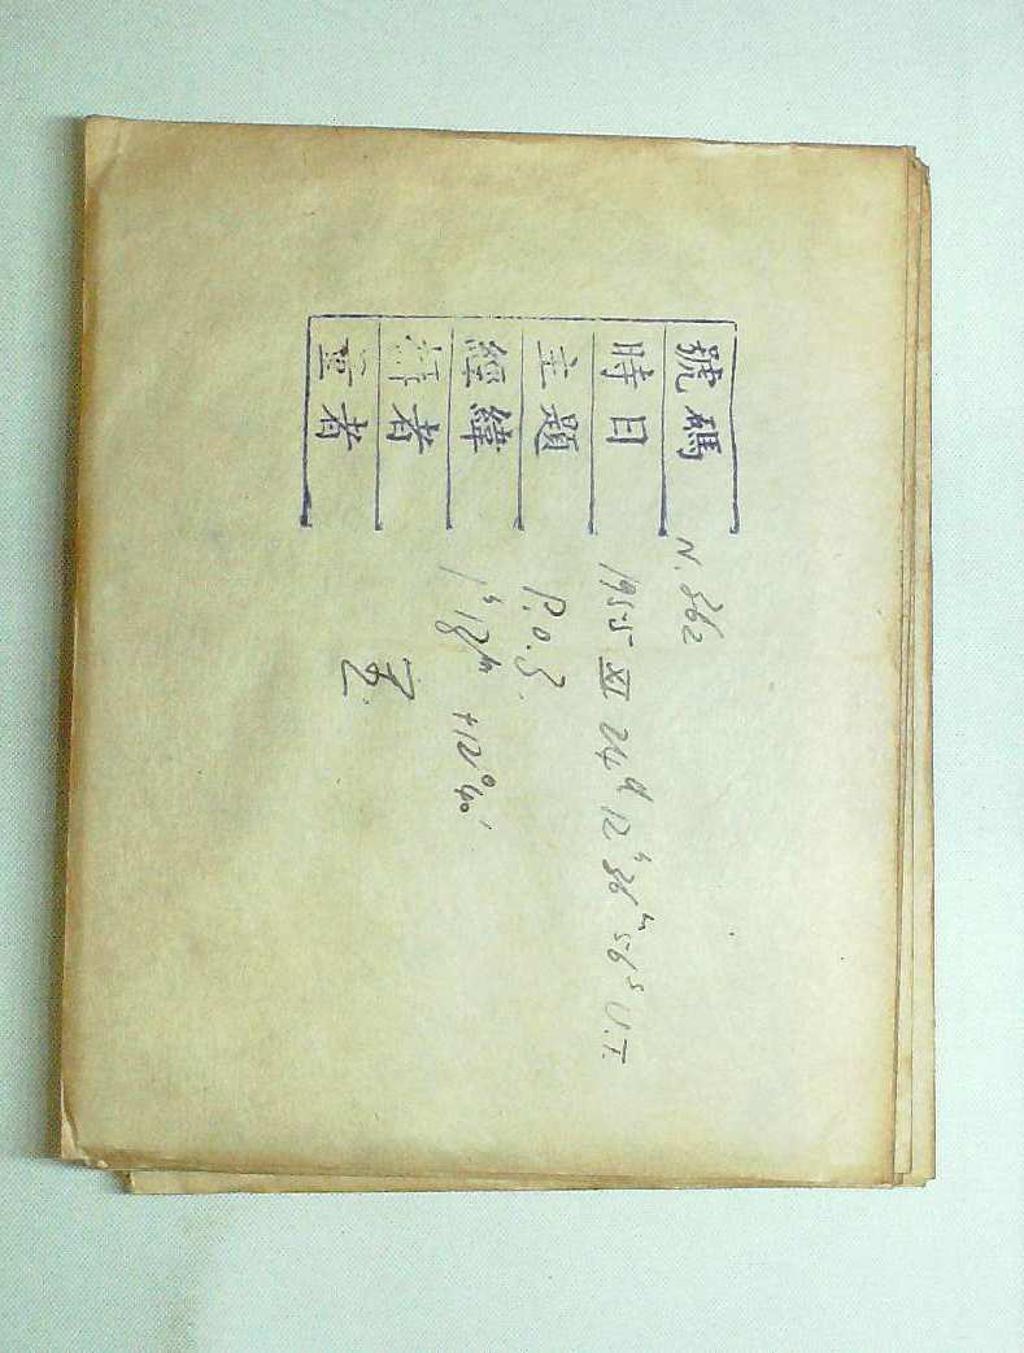 號碼 N. 362
時日 1955 XI 24d 12h 36m 56s U.T.
主題 P.O.3.
經緯 1h 12m +12°40'
者
者